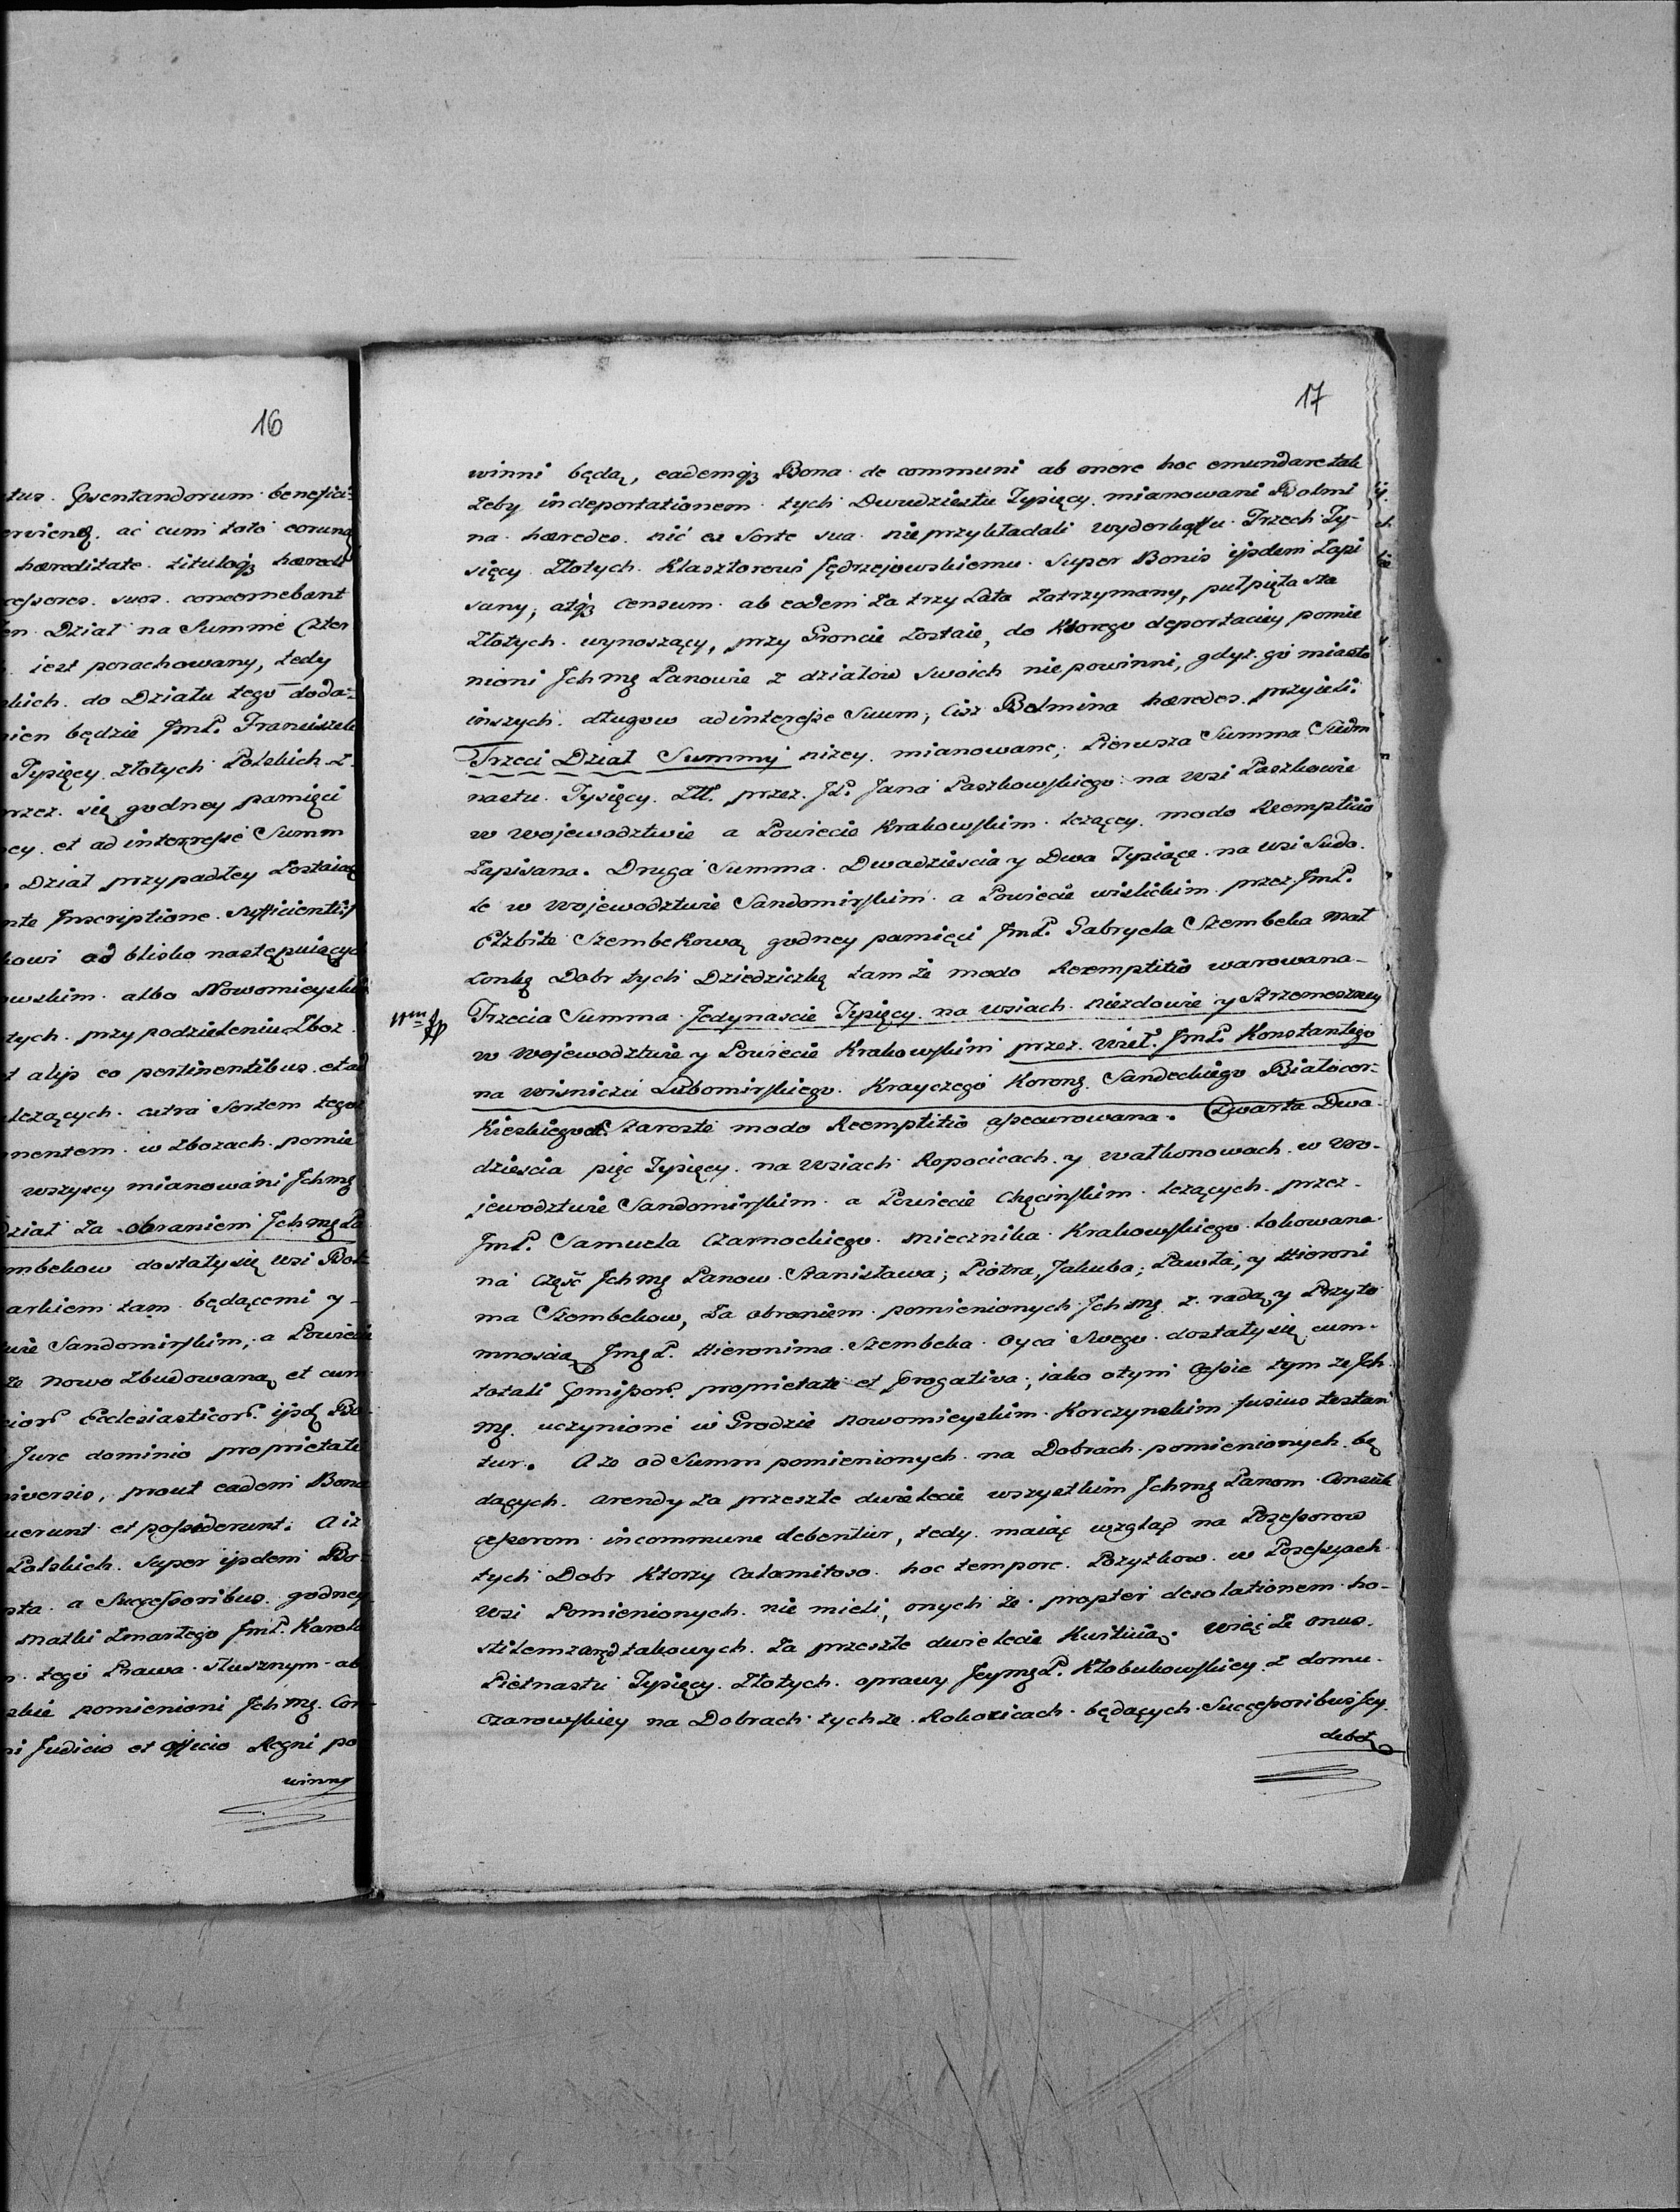 16
tus. Gsentandorum benefici=
ervienq. ac cum toto corunq
hæreditate. titulojq hæredi
cessores. suos. concernebant
en Dział na Summe Czter
iest porachowany, tedy
skich. do Działu tego doda=
nien będzie JmP. Franciszek
Tysięcy Złotych Polskich Z
przez. się godney pamięci
ey. et ad interesse Summ
Dział przypadłey Zostaiąc
nte Inscriptione. sufficienti
kowi ad blisko następuiących
owskim albo Nowomieyskim
tych. przy podzieleniu Zboz
t alijs eo pertinentibus. et ad
lezących. citra Sortem tego
nentem. w Zbozach. pomie
wszyscy mianowani Jchmę
Dział Za obraniem JchmęPa
mbekow dostały się wsi Bol=
arkiem tam będącemi y
wie Sandomirskim, a Powiecie
ze nowo Zbudowaną et cum
cior Ecclesiasticor. ijsdq Bo
Jure dominio proprietate
niversis, prout eadem Bona
uerunt et possiderunt. A iz
Polskich. Super ijsdem Bo=
sta. a Successoribus. godney
Matki Zmarłego JmP. Karola
tego Prawa. słusznym ab
skie pomienioni Jchmę. Con
ni Judicio et Officio Regni po
winny
17
winni będą, eademqz Bona de communi ab onere hoc emundare tak
Zeby in deportationem tych Dwudziestu Tysięcy mianowani Bolmi
na hæredes. nić ex Sorte sua. nie przykładali wyderkaffu Trzech Ty-
sięcy Złotych. Klasztorowi Jędrzejowskiemu. Super Bonis ijsdem Zapi
sany, atqz Censum ab eodem Za trzy Lata Zatrzymany, puł pięta sta
Złotych. wynoszący, przy Groncie Zostaie, do Ktorego deportaciey pomie
nioni Jchmę Panowie z działow swoich nie powinni, gdyz. go miasto
inszych. długow ad interesse Suum, Ciz Bolmina hæredes. przyieli.
Trzeci Dział Summy nizey. mianowane; Pierwsza Summa Siedm
nastu. Tysięcy. Złł. przez. JP. Jana Paszkowskiego na wsi Paszkowie
w wojewodztwie a Powiecie Krakowskim. lezącey. modo Reemptitio
Zapisana. Druga Summa. Dwadziescia y Dwa Tysiące. na wsi Sudo.
le w wojewodztwie Sandomirskim. a Powiecie wislickim przez JmP.
Elzbite Szembekową godney pamięci JmP. Gabryela Szembeka Mał
Zonkę Dobr tych Dziedziczkę tam że modo Reemptitio warowana-
Trzecia Summa Jedynascie Tysięcy na wsiach niezdowie y Strzemeszney
w wojewodztwie y Powiecie Krakowskim przez. Wiel. JmP. Konstantego
na wisniczu Lubomirskiego. Krayczego Koronę. Sandeckiego Białocer=
Kieskiego &. Staroste modo Reemptitio assecurowana. Czwarta Dwa
dziescia pięc Tysięcy na wsiach Ropocicach y watkonowach w wo-
jewodztwie Sandomirskim a Powiecie Chęcinskim lezących. przez-
JmP. Samuela Czarnockiego. Miecznika Krakowskiego. Lokowana
na Część Jchmę Panow. Stanisława; Piotra, Jakuba; Pawła; y Hieroni
ma Szembekow, Za obraniem. pomienionych Jchmę z. radą y Przyto
mnoscią JmgP. Hieronima. Szembeka Oyca Swego. dostały się cum
totali Gmissor. proprietate et Grogativa; iako o tym Cessie tym że Jch
mę. uczynione w Grodzie Nowomieyskim Korczynskim fusius testan
tur. A że od Summ pomienionych. na Dobrach. pomienionych bę
dących. arendy Za przeszłe dwie lecie wszystkim Jchmę Panom Consuk
cessorom in commune debentur, tedy. maiąc wzgląd na Possessorow
tych Dobr Ktorzy Calamitoso. hoc tempore. Pozytkow. w Possessyach
wsi Pomienionych. nie mieli, onych że propter desolationem ho-
stilem zaręd takowych. Za przeszłe dwie lecie Kwituią. więc że onus.
Pietnastu Tysięcy. Złotych. oprawy JeymgP. Kłobukowskiey z domu
Czarowskiey na Dobrach tychze Rokocicach będących. Successoribus Jey.
debet